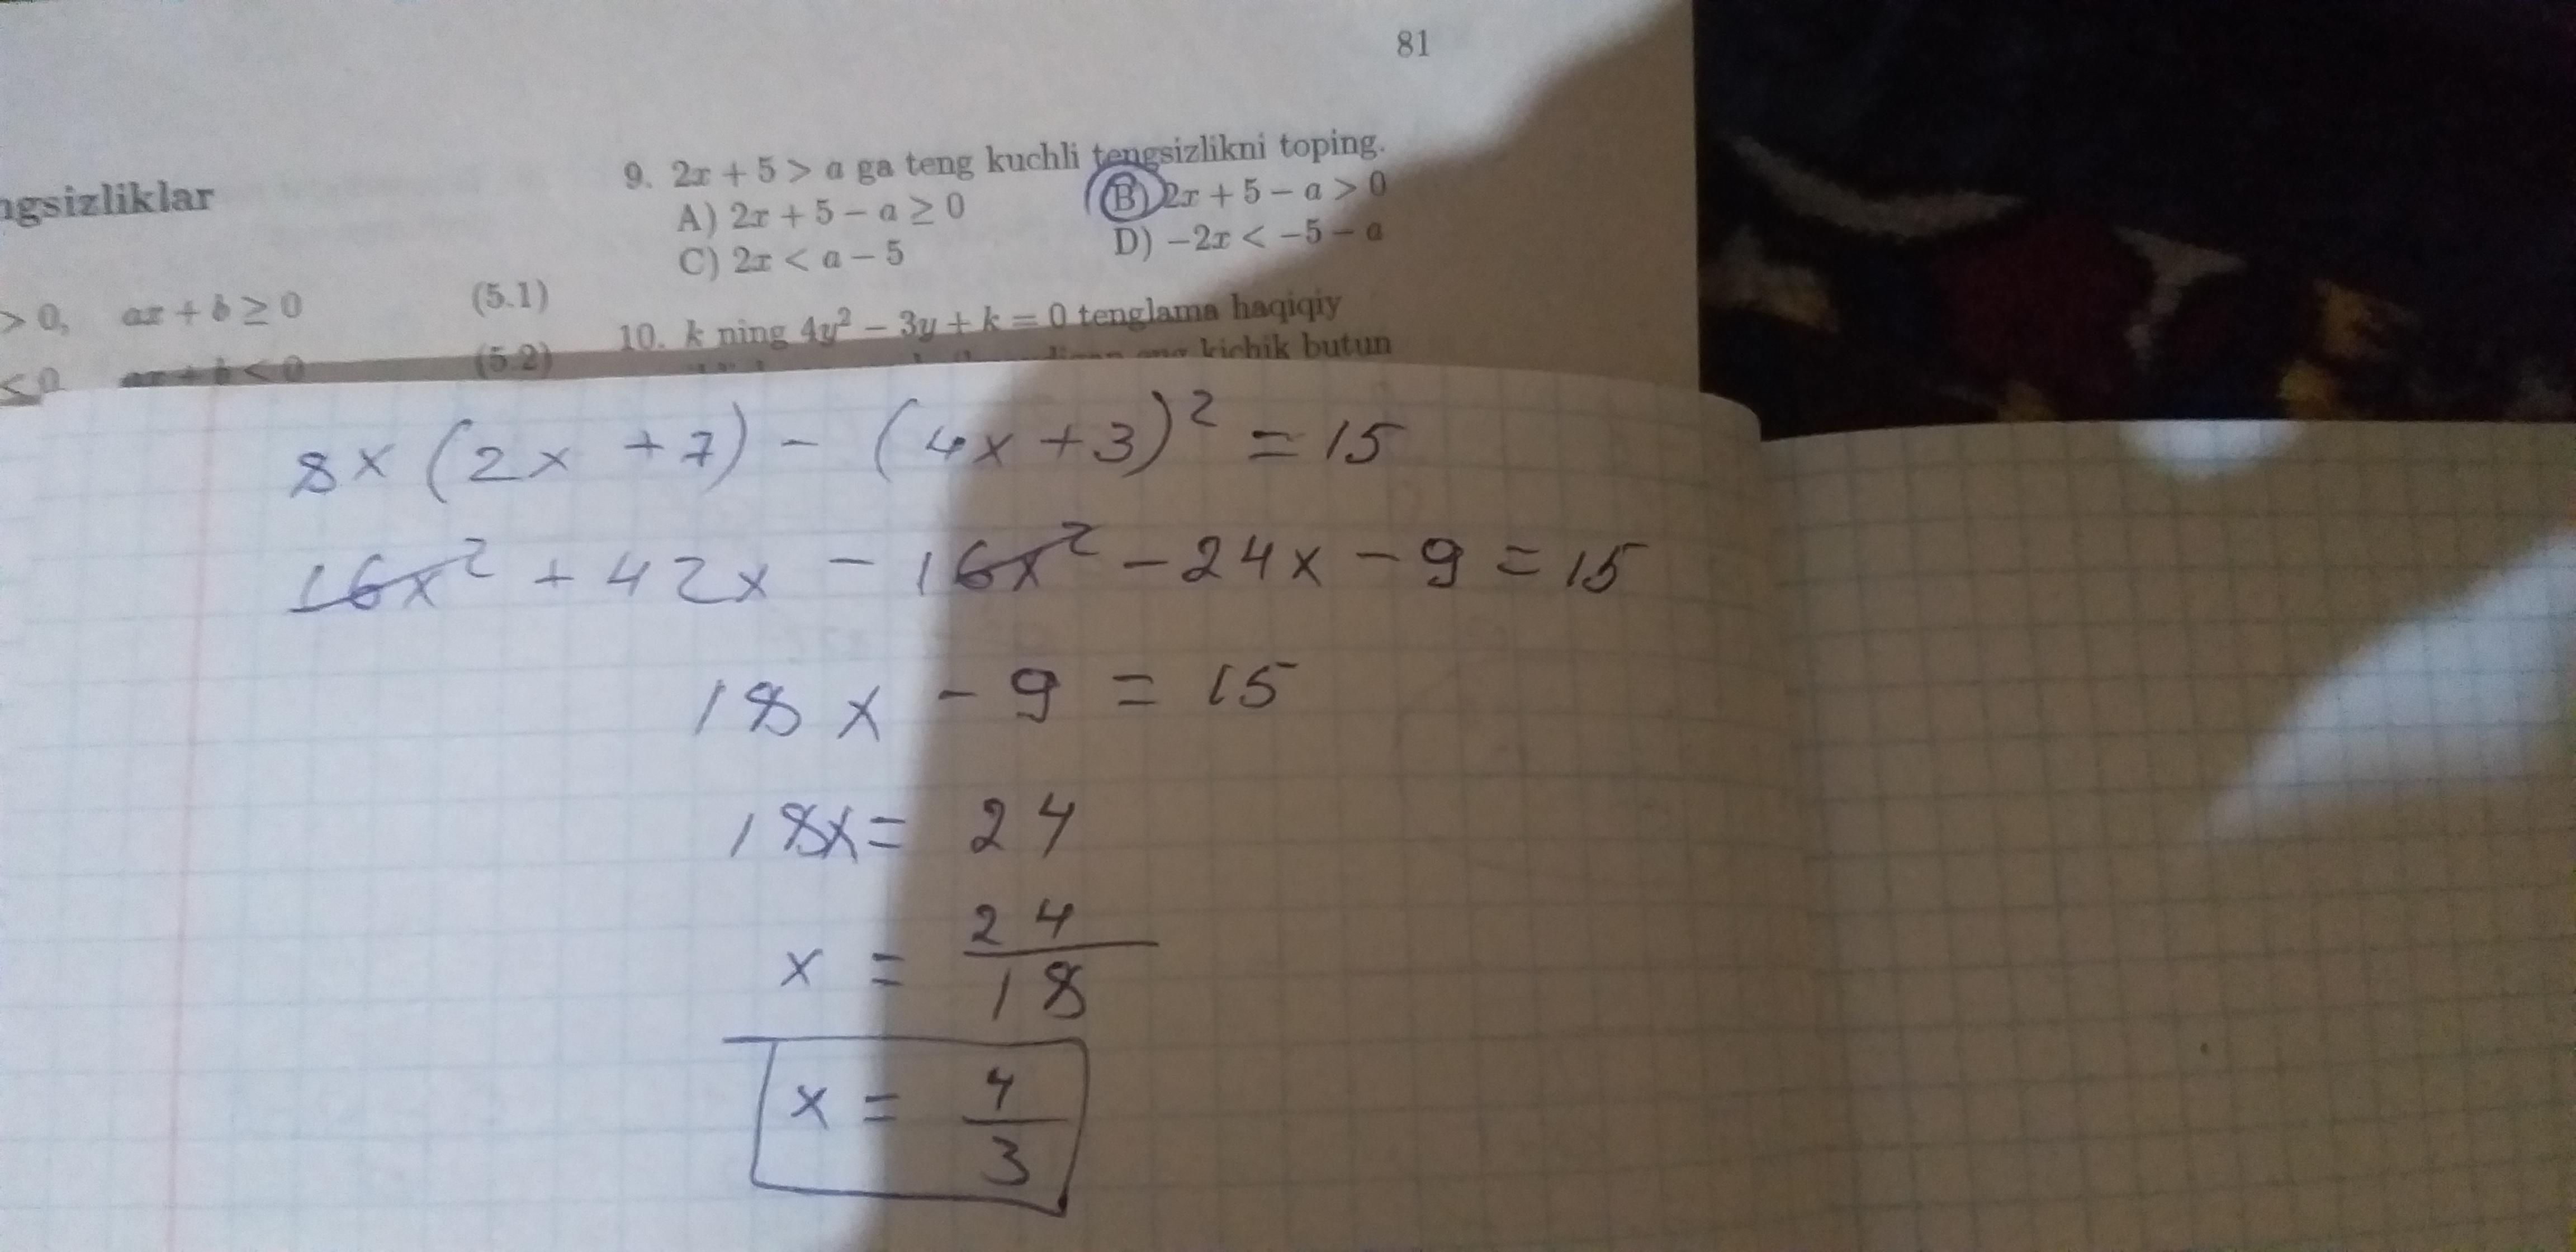 81
ngsizliklar
> 0, ax + b ≥ 0 (5.1)
< 0 ax + b < 0 (5.2)
9. 2x + 5 > a ga teng kuchli tengsizlikni toping.
A) 2x + 5 − a ≥ 0 B) 2x + 5 − a > 0
C) 2x < a − 5 D) −2x < −5 − a
10. k ning 4y² − 3y + k = 0 tenglama haqiqiy
kichik butun
8x (2x + 7) − (4x + 3)² = 15
16x² + 42x − 16x² − 24x − 9 = 15
18x − 9 = 15
18x = 24
x = 24/18
x = 4/3